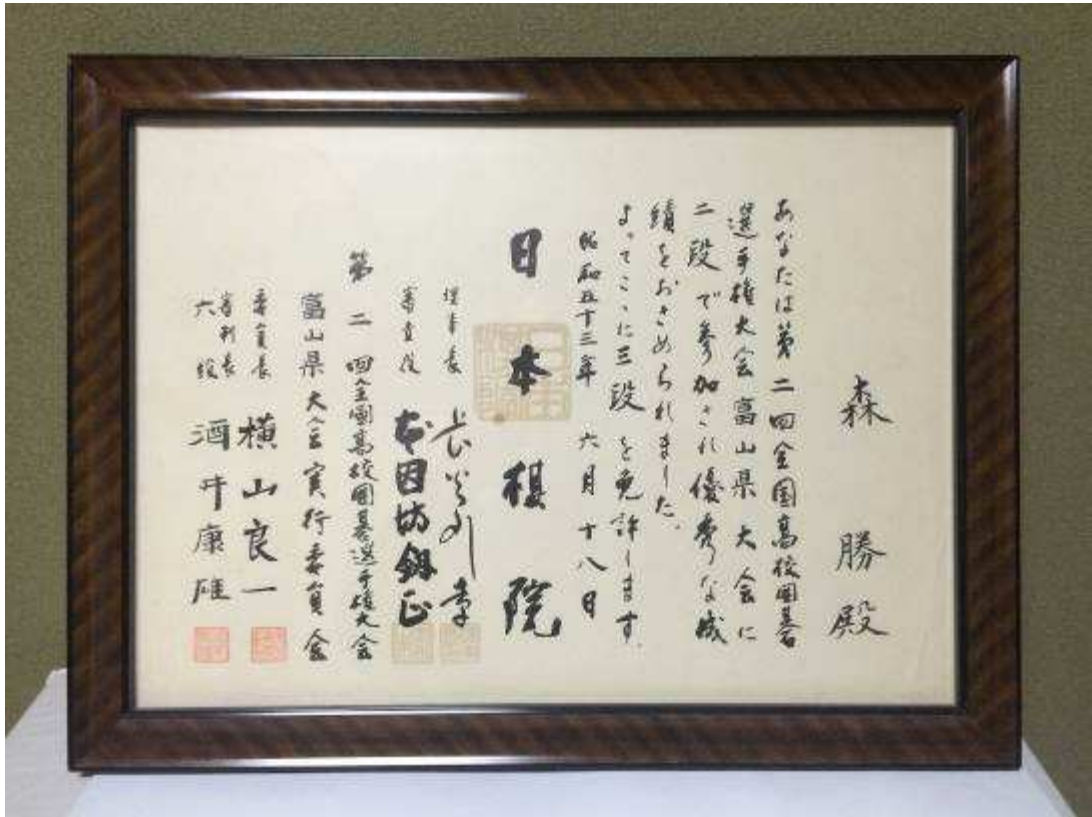 森 勝 殿
あなたは第二回全国高校囲碁
選手権大会富山県大会に
二段で参加され優秀な成
績をおさめられました。
よってここに三段を免許します。
昭和五十三年 六月十八日
日本棋院
理事長 長谷川 章
審査役 本因坊剱正
第二回全国高校囲碁選手権大会
富山県大会実行委員会
委員長 横山良一
審判長
六段 酒井康雄